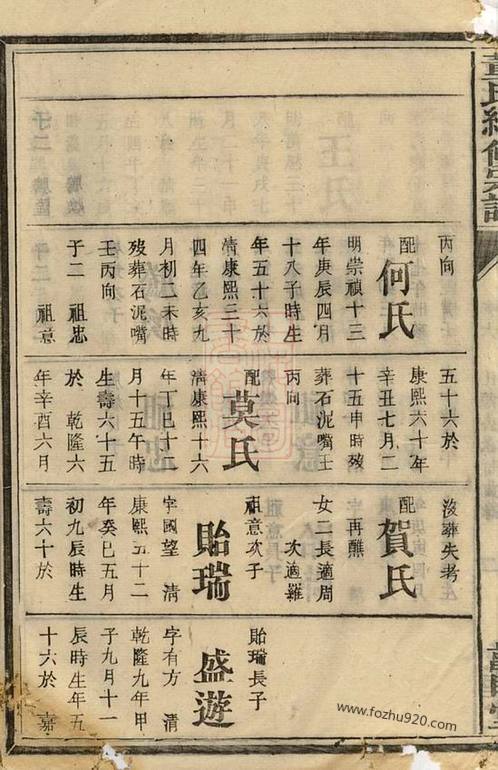 丙向
配
何氏
明崇禎十三
年庚辰四月
十八子時生
年五十六於
清康熙三十
四年乙亥九
月初二未時
歿葬石泥嘴
壬丙向
子二 祖忠
祖意
五十六於
康熙六十年
辛丑七月二
十五申時歿
葬石泥嘴士
丙向
配
莫氏
清康熙十六
年丁巳十二
月十五午時
生壽六十五
於 乾隆六
年辛酉六月
沒葬失考
配
賀氏
再醮
女二長適周
次適羅
祖意次子
貽瑞
字國望 清
康熙五十二
年癸巳五月
初九辰時生
壽六十於
貽瑞長子
盛遊
字有方 清
乾隆九年甲
子九月十一
辰時生年五
十六於 嘉
www.fozhu920.com